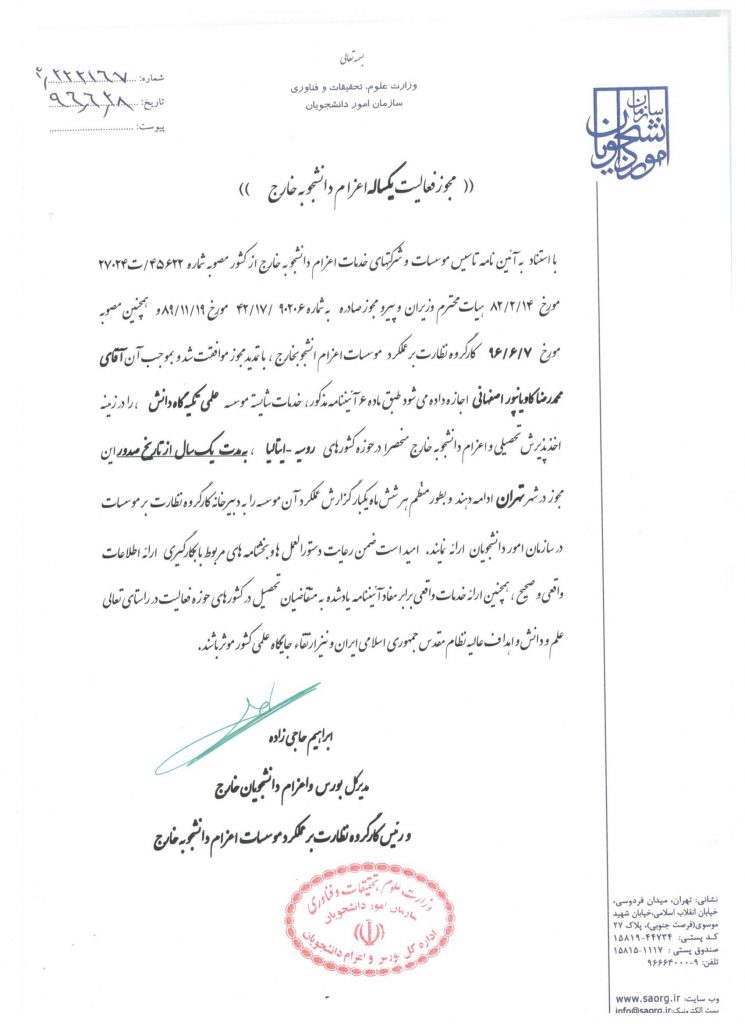 بسمه تعالی
وزارت علوم، تحقیقات و فناوری
سازمان امور دانشجویان
شماره: ۲/۲۲۲۱۶۷
تاریخ: ۹۶/۶/۲۸
پیوست:
سازمان امور دانشجویان
(( مجوز فعالیت یکساله اعزام دانشجو به خارج ))
با استناد به آئین نامه تاسیس موسسات و شرکتهای خدمات اعزام دانشجو به خارج از کشور مصوبه شماره ۴۵۶۲۲/ت۲۷۰۲۴
مورخ ۸۲/۲/۱۴ هیات محترم وزیران و پیرو مجوز صادره به شماره ۴۲/۱۷/ ۹۰۲۰۶ مورخ ۸۹/۱۱/۱۹ و همچنین مصوبه
مورخ ۹۶/۶/۷ کارگروه نظارت بر عملکرد موسسات اعزام انشجو بخارج ، با تمدید مجوز موافقت شد و بموجب آن آقای
محمدرضا کاویانپور اصفهانی اجازه داده می شود طبق ماده ۶ آئیننامه مذکور، خدمات شایسته موسسه علمی تکیه گاه دانش ، را در زمینه
اخذ پذیرش تحصیلی و اعزام دانشجو به خارج منحصرا در حوزه کشورهای روسیه - ایتالیا ، به مدت یک سال از تاریخ صدور این
مجوز در شهر تهران ادامه دهند و بطور منظم هر شش ماه یکبار گزارش عملکرد آن موسسه را به دبیرخانه کارگروه نظارت بر موسسات
در سازمان امور دانشجویان ارائه نمایند. امید است ضمن رعایت دستورالعمل ها و بخشنامه های مربوط با بکارگیری ارائه اطلاعات
واقعی و صحیح ، همچنین ارائه خدمات واقعی برابر مفاد آئیننامه یادشده به متقاضیان تحصیل در کشورهای حوزه فعالیت در راستای تعالی
علم و دانش و اهداف عالیه نظام مقدس جمهوری اسلامی ایران و نیز ارتقاء جایگاه علمی کشور موثر باشند.
ابراهیم حاجی زاده
مدیرکل بورس و اعزام دانشجویان خارج
و رئیس کارگروه نظارت بر عملکرد موسسات اعزام دانشجو به خارج
وزارت علوم تحقیقات و فناوری
سازمان امور دانشجویان
اداره کل بورس و اعزام دانشجویان
نشانی: تهران، میدان فردوسی،
خیابان انقلاب اسلامی،خیابان شهید
موسوی(فرصت جنوبی)، پلاک ۲۷
کد پستی: ۴۴۷۳۴-۱۵۸۱۹
صندوق پستی : ۱۱۱۷-۱۵۸۱۵
تلفن: ۹-۹۶۶۶۴۰۰۰
وب سایت: www.saorg.ir
پست الکترونیک:info@saorg.ir